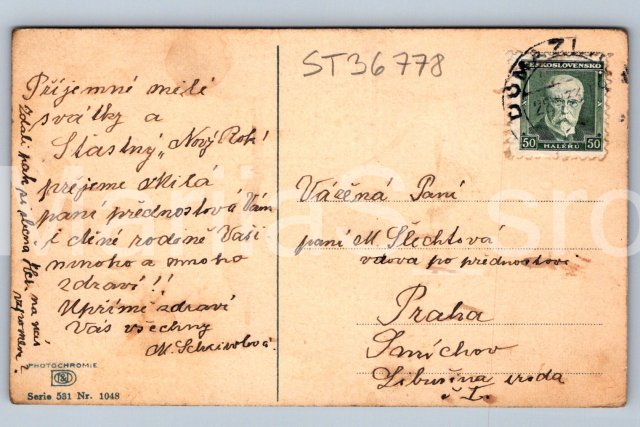 ST36778
Příjemné milé
svátky a
Šťastný „Nový Rok!
přejeme Milá
paní přednostová Vám
i ctěné rodině Vaší
mnoho a mnoho
zdraví!!
Upřímě zdraví
Vás všechny
M.
Zdali pak si na nás
PHOTOCHROMIE
Serie 531 Nr. 1048
DOMAŽL
ČESKOSLOVENSKO
50 HALÉŘŮ 50
Vážená Paní
paní M. Šlechtová
vdova po přednostovi
Praha
Smíchov
Libušina
č I.